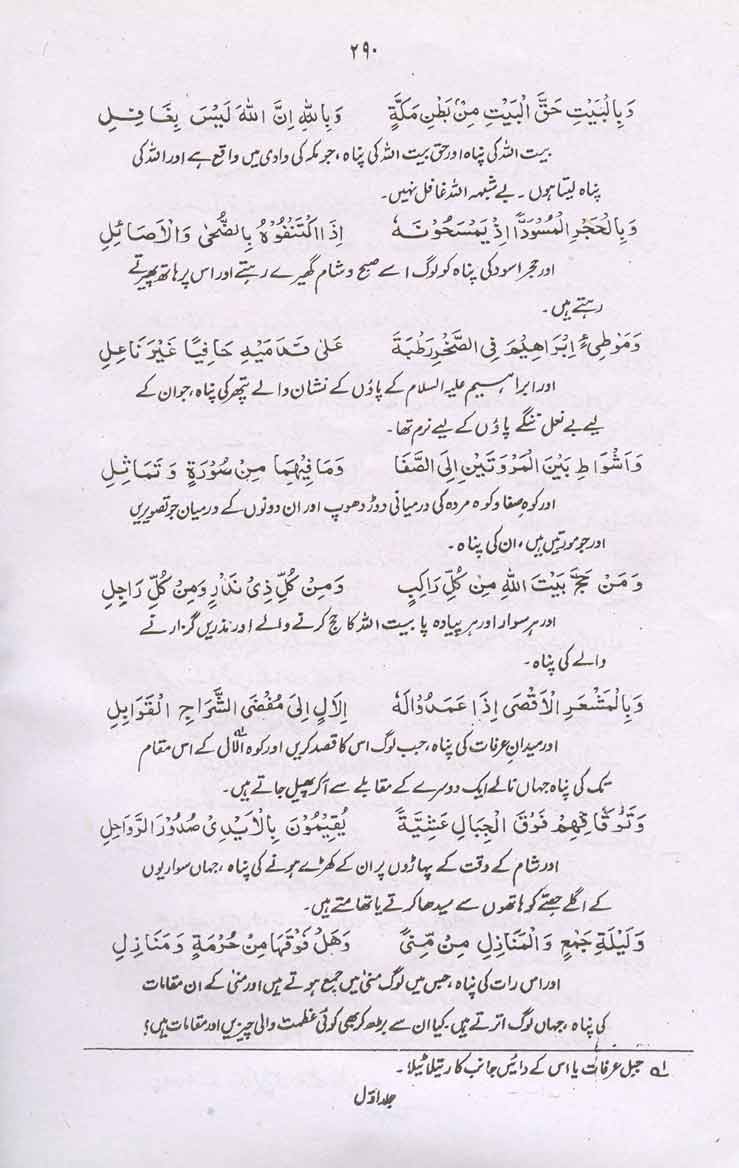 ۲۹۰
وَبِالْبَيْتِ حَقَّ الْبَيْتِ مِنْ بَطْنِ مَكَّةٍ وَبِاللهِ اِنَّ اللهَ لَيْسَ بِغَافِلِ
بیت اللہ کی پناہ اور حق بیت اللہ کی پناہ، جو مکہ کی وادی میں واقع ہے اور اللہ کی
پناہ لیتا ہوں۔ بے شبہہ اللہ غافل نہیں۔
وَبِالْحَجَرِ الْمُسْوَدِّ اِذْ يَمْسَحُوْنَهٗ اِذَا اكْتَنَفُوْهُ بِالضُّحٰى وَالْاَصَائِلِ
اور حجر اسود کی پناہ کو لوگ اسے صبح و شام گھیرے رہتے اور اس پر ہاتھ پھیرتے
رہتے ہیں۔
وَمَوْطِئِ اِبْرَاهِيْمَ فِى الصَّخْرِ رَطْبَةً عَلٰى قَدَمَيْهِ حَافِيًا غَيْرَ نَاعِلِ
اور ابراہیم علیہ السلام کے پاؤں کے نشان والے پتھر کی پناہ، جو ان کے
لیے بے نعل ننگے پاؤں کے لیے نرم تھا۔
وَاَشْوَاطِ بَيْنَ الْمَرْوَتَيْنِ اِلَى الصَّفَا وَمَا فِيْهِمَا مِنْ صُوْرَةٍ وَتَمَاثِلِ
اور کوہِ صفا و کوہ مروہ کی درمیانی دوڑ دھوپ اور ان دونوں کے درمیان جو تصویریں
اور جو مورتیں ہیں، ان کی پناہ۔
وَمَنْ حَجَّ بَيْتَ اللهِ مِنْ كُلِّ رَاكِبٍ وَمِنْ كُلِّ ذِىْ نَذْرٍ وَمِنْ كُلِّ رَاجِلِ
اور ہر سوار اور ہر پیادہ پا بیت اللہ کا حج کرنے والے اور نذریں گزارنے
والے کی پناہ۔
وَبِالْمَشْعَرِ الْاَقْصٰى اِذَا عَمَدُوْا لَهٗ اِلَالٍ اِلٰى مُفْضَى الشِّرَاجِ الْقَوَابِلِ
اور میدانِ عرفات کی پناہ، جب لوگ اس کا قصد کریں اور کوہ اِلال کے اس مقام
تک کی پناہ جہاں نالے ایک دوسرے کے مقابلے سے آ کر پھیل جاتے ہیں۔
وَتَوْقَافِهِمْ فَوْقَ الْجِبَالِ عَشِيَّةً يُقِيْمُوْنَ بِالْاَيْدِىْ صُدُوْرَ الرَّوَاحِلِ
اور شام کے وقت کے پہاڑوں پر ان کے کھڑے ہونے کی پناہ، جہاں سواریوں
کے اگلے حصّے کو ہاتھوں سے سیدھا کرتے یا تھامتے ہیں۔
وَلَيْلَةِ جَمْعٍ وَالْمَنَازِلِ مِنْ مِنًى وَهَلْ فَوْقَهَا مِنْ حُرْمَةٍ وَمَنَازِلِ
اور اس رات کی پناہ، جس میں لوگ منیٰ میں جمع ہوتے ہیں اور منیٰ کے ان مقامات
کی پناہ، جہاں لوگ اترتے ہیں۔ کیا ان سے بڑھ کر بھی کوئی عظمت والی چیزیں اور مقامات ہیں؟
لہ جبل عرفات یا اس کے دائیں جانب کا ریتلا ٹیلا۔
جلد اوّل